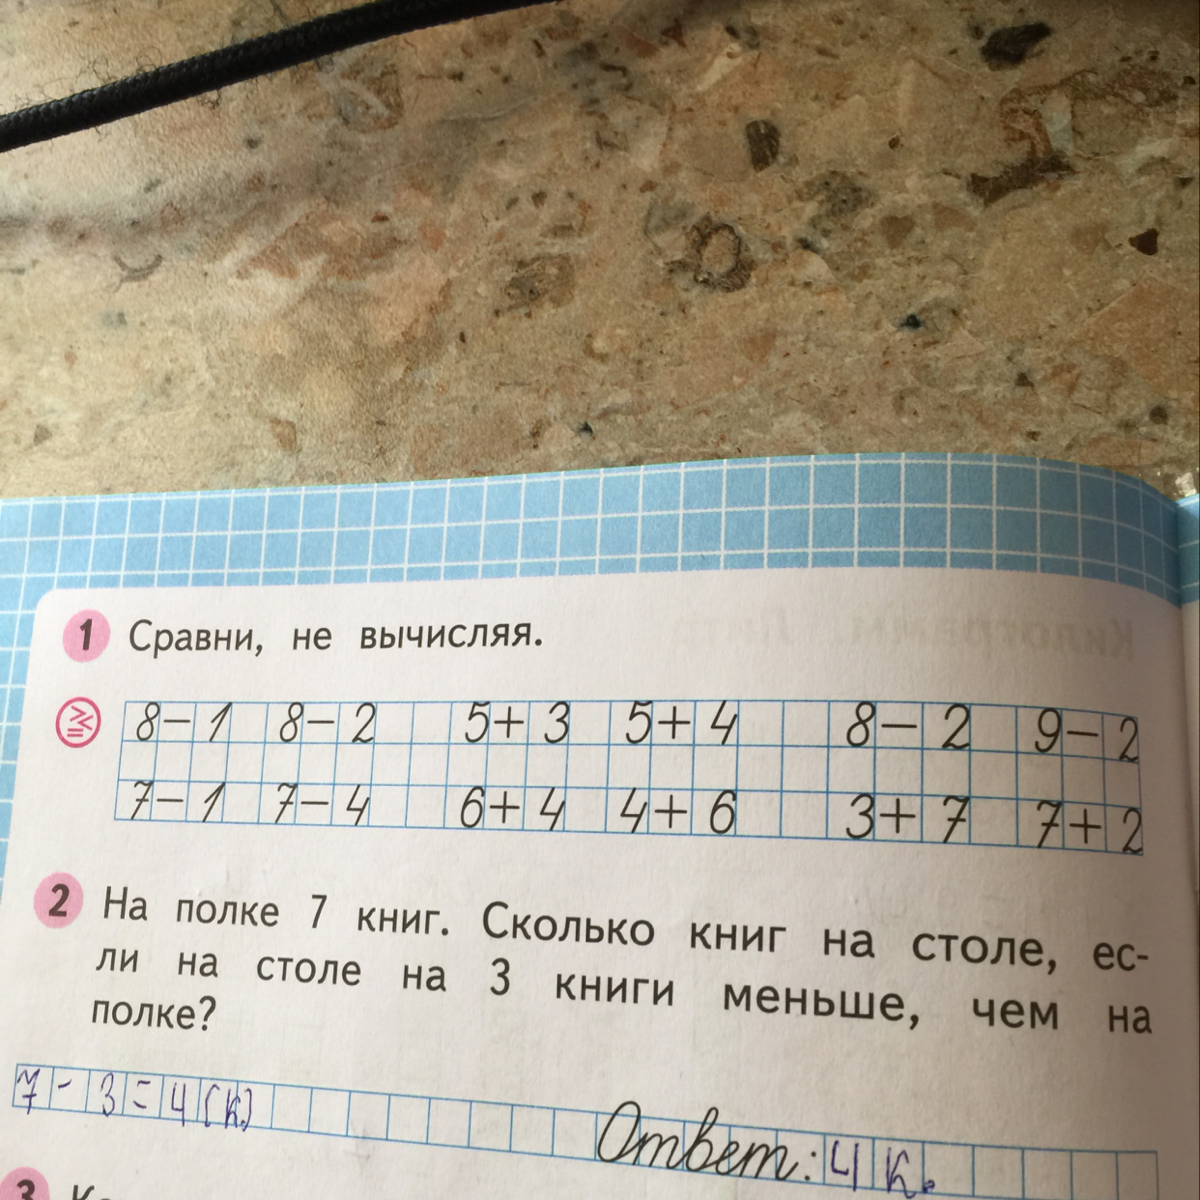 1 Сравни, не вычисляя.
8 – 1 8 – 2 5 + 3 5 + 4 8 – 2 9 – 2
7 – 1 7 – 4 6 + 4 4 + 6 3 + 7 7 + 2
2 На полке 7 книг. Сколько книг на столе, ес-
ли на столе на 3 книги меньше, чем на
полке?
7 - 3 = 4 (к.)
Ответ: 4 к.
3